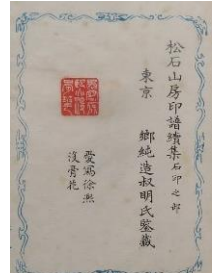 松石山房印譜續集石印之部
東京 鄉純造叔明氏鑒藏
愛寫徐熙
沒骨花